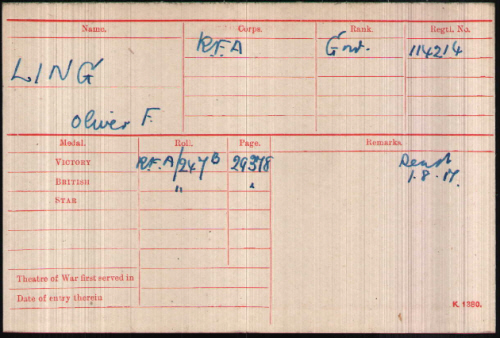 Name. Corps. Rank. Regtl. No.
LING R.F.A Gnr. 114214
Oliver F.
Medal. Roll. Page. Remarks.
VICTORY R.F.A/247B 29378
BRITISH " "
1.8.17.
STAR
Theatre of War first served in
Date of entry therein
K. 1380.